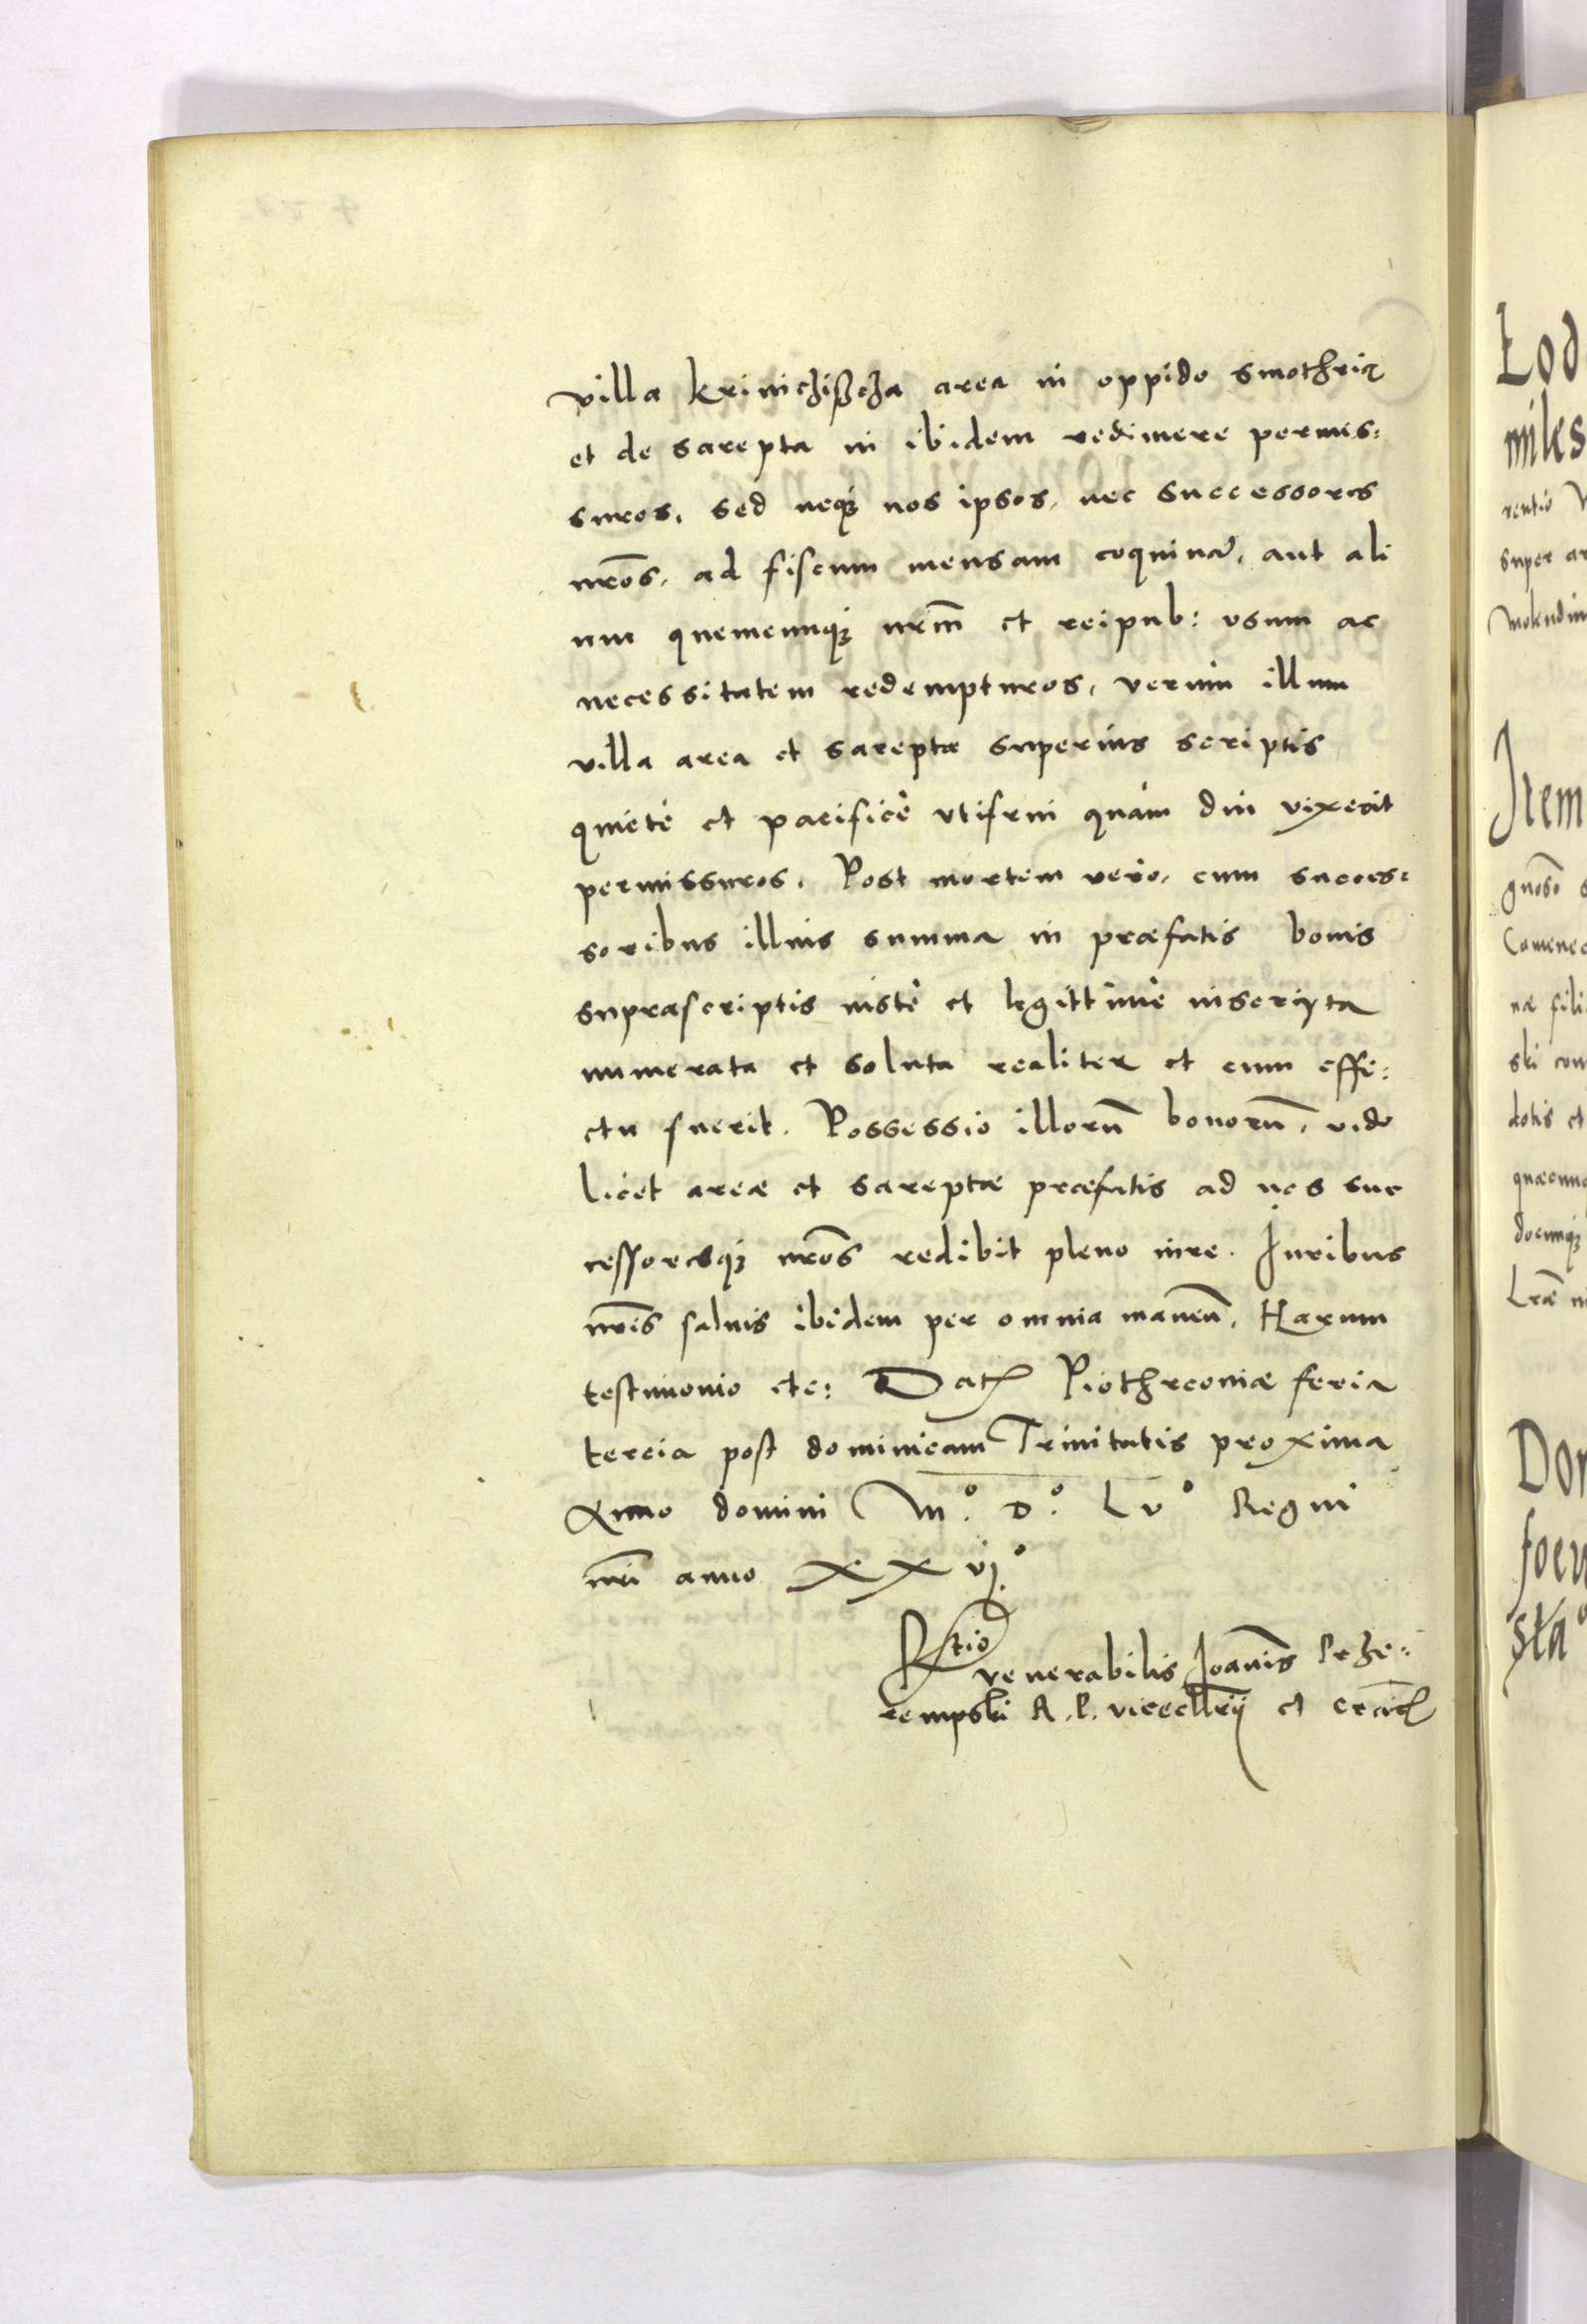 villa krinichißcza area in oppido smothricz
et de sarepta in ibidem redimere permis:
suros. sed neq3 nos ipsos, nec successores
nros̃, ad fiscum mensam coquinã, aut ali
um quemcunq3 nrm̃ et reipub: vsum ac
necessitatem redempturos, verum illum
villa area et sarepta superius scriptis
quietè et pacificè vtifrui quàm diu vixerit
permissuros. Post mortem verò, cum succes:
soribus illius summa in præfatis bonis
supræscriptis iustè et legittimè inscripta
numerata et soluta realiter et cum effe:
ctu fuerit. Possessio illorũ bonorũ, vide
licet areæ et sareptæ præfatis ad nos suc
cessoresq3 nros̃ redibit pleno iure. Iuribus
nris̃ saluis ibidem per omnia maneñ. Harum
testimonio etc: Dat Piothrcouiæ feria
tercia post dominicam Trinitatis proxima
Anno domini Mº. Dº. Lvº Regni
nri̅ anno XXvjº.
Rtio
venerabilis Joannis̃ Prze:
rempski R. P. vicecllrij et
Łod
miles
super
Item
Camenec
næ fili
ski con
dotis et
Dor
foen
sta